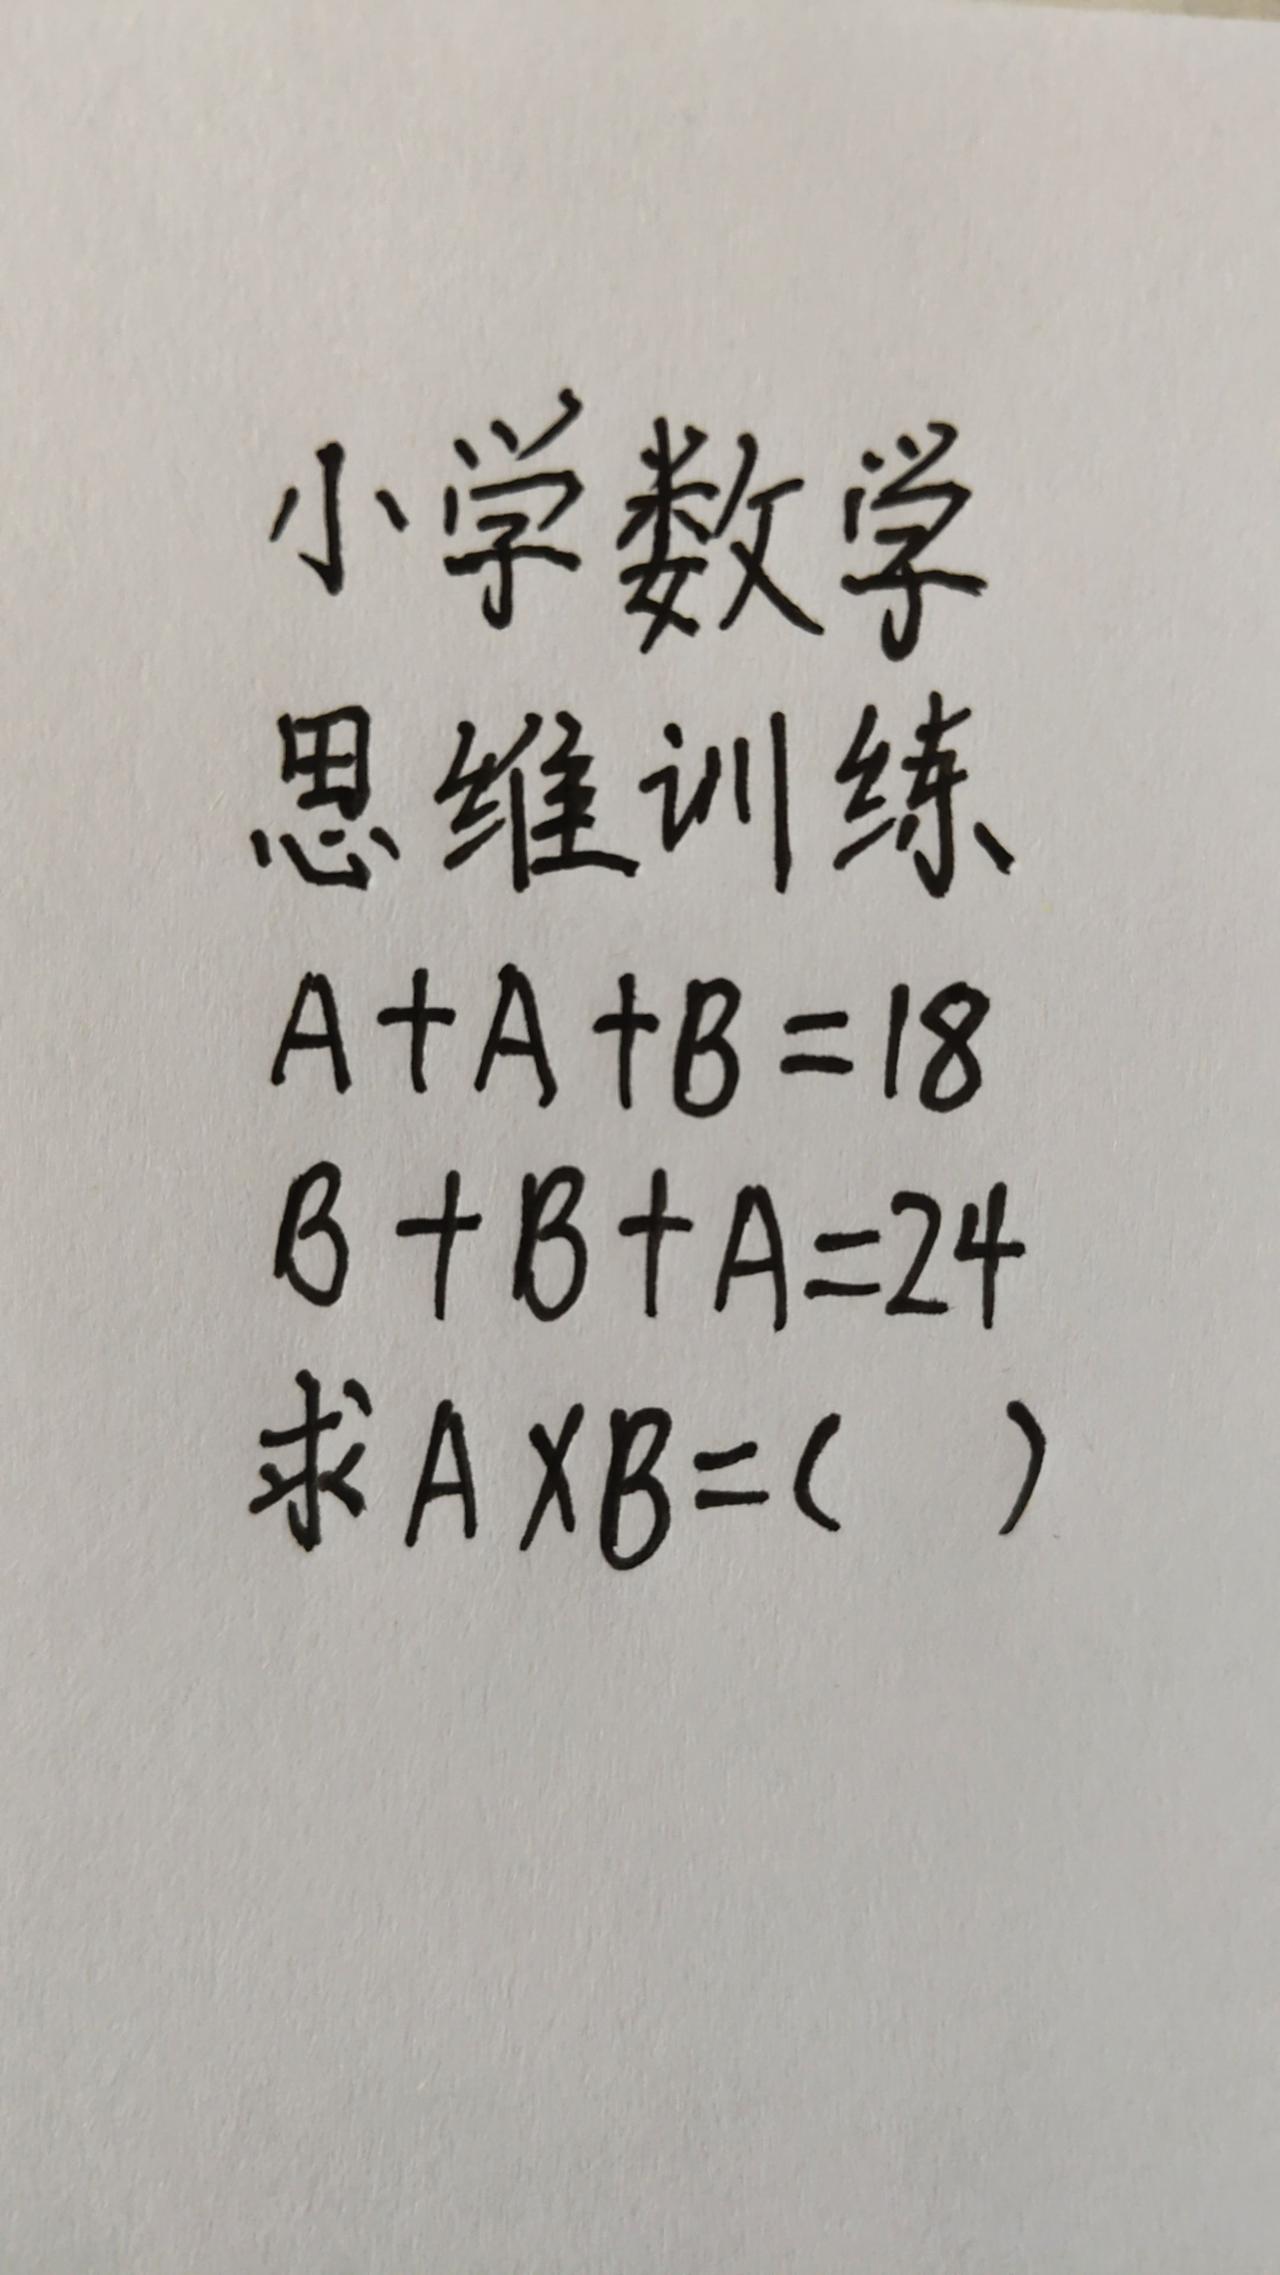 小学数学
思维训练
A+A+B=18
B+B+A=24
求A×B=( )